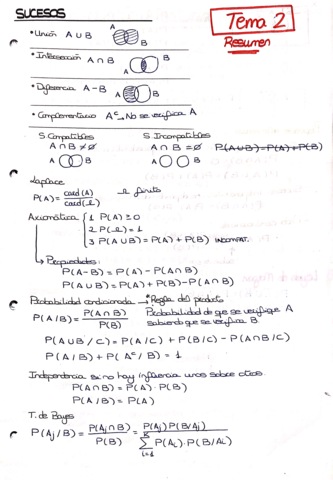 SUCESOS
Tema 2
Resumen
• Unión A ∪ B
A
B
• Intersección A ∩ B
A
B
• Diferencia A - B
A
B
• Complementario Aᶜ → No se verifica A
S. Compatibles
S. Incompatibles
A ∩ B ≠ ∅
A ∩ B = ∅
P(A∪B) = P(A) + P(B)
A
B
A
B
Laplace
P(A) = card(A) / card(Ω)
Ω finito
Axiomática
1 P(A) ≥ 0
2 P(Ω) = 1
3 P(A∪B) = P(A) + P(B) INCOMPAT.
Propiedades:
P(A-B) = P(A) - P(A∩B)
P(A∪B) = P(A) + P(B) - P(A∩B)
Probabilidad condicionada → * Regla del producto
P(A/B) = P(A∩B) / P(B)
Probabilidad de que se verifique A
sabiendo que se verifica B
P(A∪B/C) = P(A/C) + P(B/C) - P(A∩B/C)
P(A/B) + P(Aᶜ/B) = 1
Independencia si no hay influencia unos sobre otros.
P(A∩B) = P(A)·P(B)
P(A/B) = P(A)
T. de Bayes
P(Aj/B) = P(Aj∩B) / P(B) = P(Aj)P(B/Aj) / Σ i=1 P(Ai)·P(B/Ai)